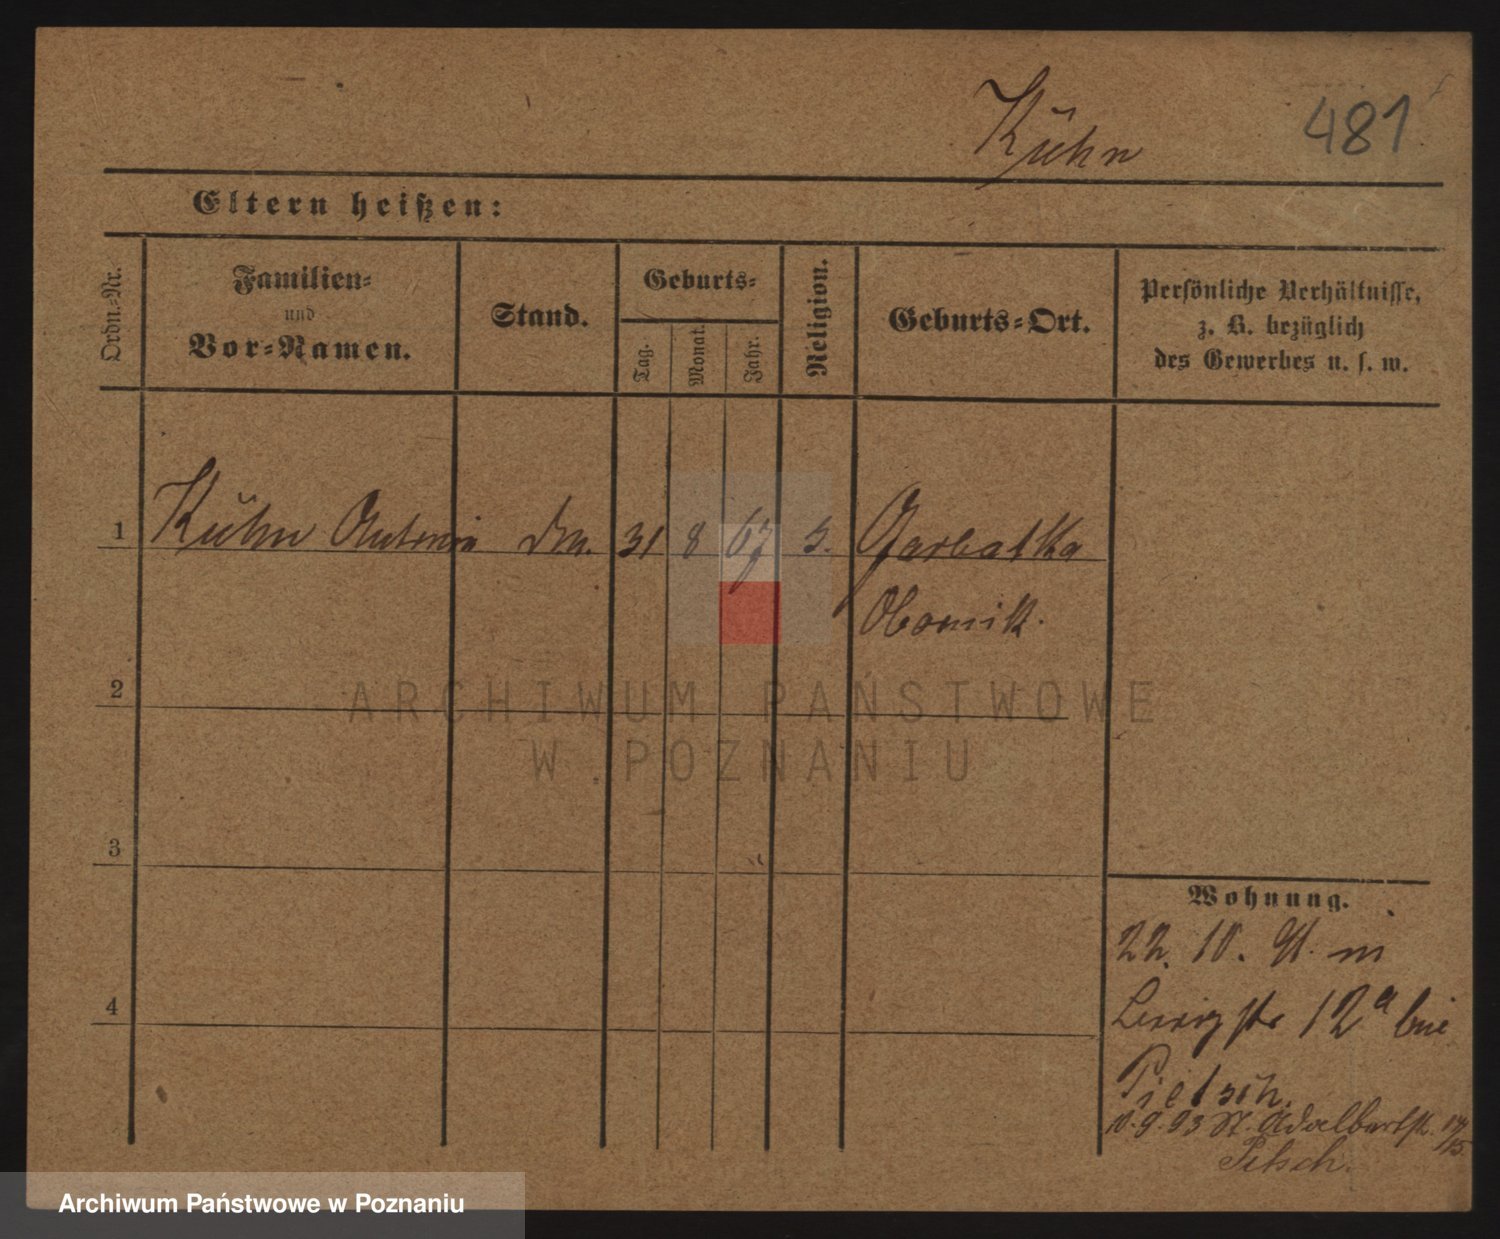 Kühn 481
Eltern heißen:
Ordn.-Nr.
Familien-
und
Vor-Namen.
Stand.
Geburts-
Tag.
Monat.
Jahr.
Religion.
Geburts-Ort.
Persönliche Verhältnisse,
z. B. bezüglich
des Gewerbes u. s. w.
1 Kühn Antonie 31 8 67 Garbatka
Obornik.
2
ARCHIWUM PAŃSTWOWE
W POZNANIU
3
4
Wohnung.
22. 10. 91.
12a bei
Pietsch.
10.9.93 St. Adalbertstr.
Petsch.
Archiwum Państwowe w Poznaniu